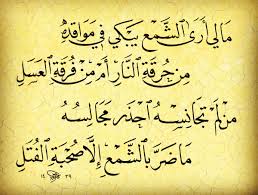 مَا لِي أَرَى الشَّمْعَ يَبْكِي فِي مَوَاقِدِهِ
مِنْ حُرْقَةِ النَّارِ أَمْ مِنْ فُرْقَةِ الْعَسَلِ
مَنْ لَمْ تُجَانِسْهُ احْذَرْ مُجَالِسُهُ
مَا ضَرَّ بِالشَّمْعِ إِلَّا صُحْبَةُ الْفُتُلِ